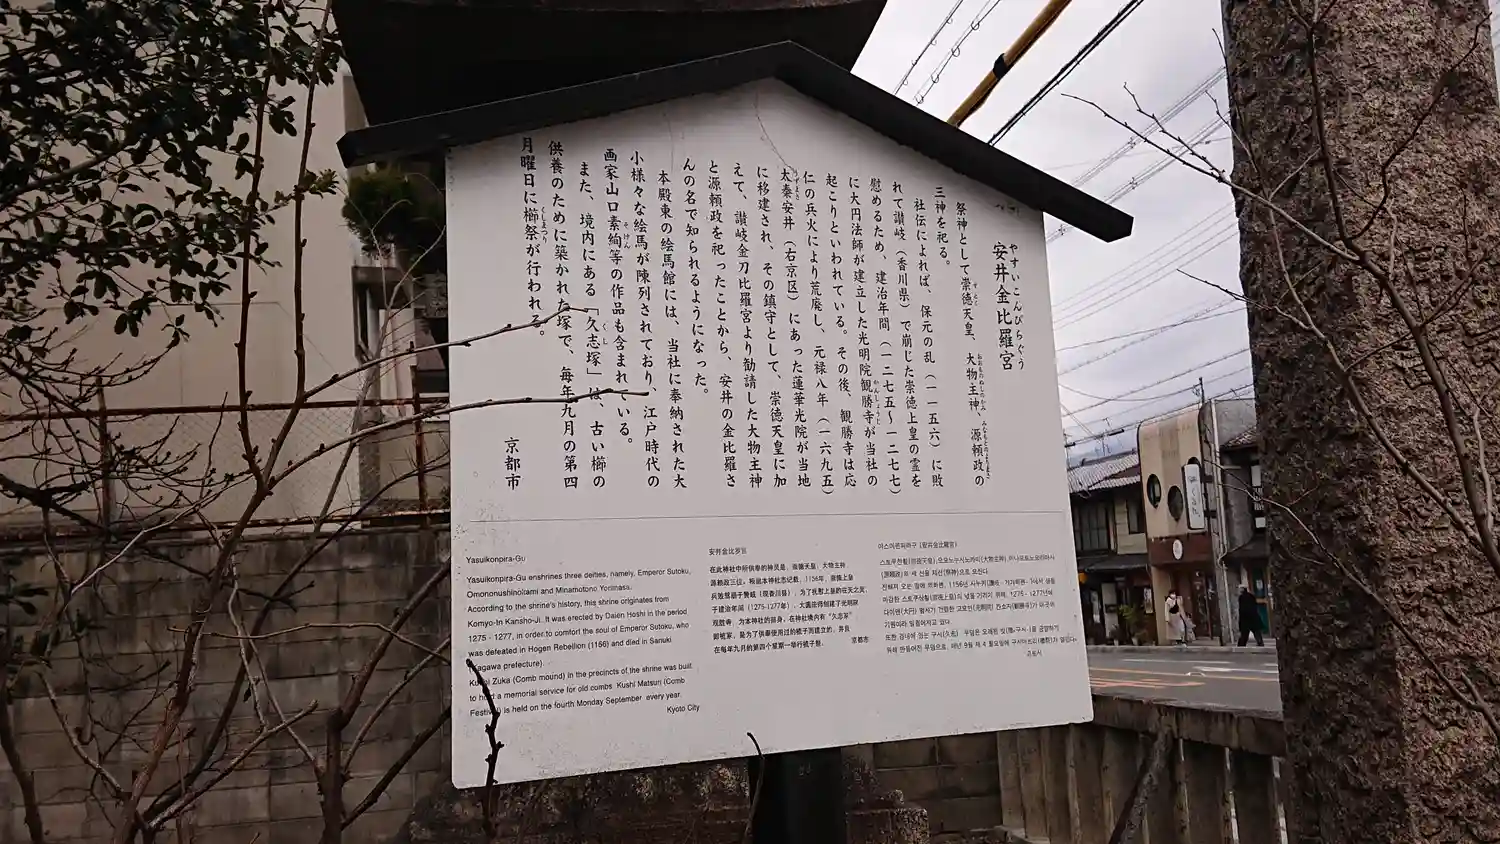 やすいこんぴらぐう
安井金比羅宮
祭神として崇徳天皇、大物主神、源頼政の
三神を祀る。
社伝によれば、保元の乱（一一五六）に敗
れて讃岐（香川県）で崩じた崇徳上皇の霊を
慰めるため、建治年間（一二七五～一二七七）
に大円法師が建立した光明院観勝寺が当社の
起こりといわれている。その後、観勝寺は応
仁の兵火により荒廃し、元禄八年（一六九五）
太秦安井（右京区）にあった蓮華光院が当地
に移建され、その鎮守として、崇徳天皇に加
えて、讃岐金刀比羅宮より勧請した大物主神
と源頼政を祀ったことから、安井の金比羅さ
んの名で知られるようになった。
本殿東の絵馬館には、当社に奉納された大
小様々な絵馬が陳列されており、江戸時代の
画家山口素絢等の作品も含まれている。
また、境内にある「久志塚」は、古い櫛の
供養のために築かれた塚で、毎年九月の第四
月曜日に櫛祭が行われる。
京都市
Yasuikonpira-Gu
Yasuikonpira-Gu enshrines three deities, namely, Emperor Sutoku,
Omononushinoikami and Minamotono Yorimasa.
According to the shrine's history, this shrine originates from
Komyo-In Kansho-Ji. It was erected by Daien Hoshi in the period
1275 - 1277, in order to comfort the soul of Emperor Sutoku, who
was defeated in Hogen Rebellion (1166) and died in Sanuki
(Kagawa prefecture).
Zuka (Comb mound) in the precincts of the shrine was built
to hold a memorial service for old combs. Kushi Matsuri (Comb
Festival) is held on the fourth Monday September every year.
Kyoto City
安井金比罗宫
在此神社中所供奉的神灵是，崇德天皇，大物主神
源赖政三位。根据本神社志记载，1156年，崇德上皇
兵败驾崩于赞岐（现香川县），为了抚慰上皇的在天之灵，
于建治年间（1275-1277年），大圆法师创建了光明院
观胜寺，为本神社的前身。在神社境内有“久志冢”
即梳冢，是为了供奉使用过的梳子而建立的，并且
在每年九月的第四个星期一举行梳子祭。
京都市
야스이콘피라구 (安井金比羅宮)
교토시